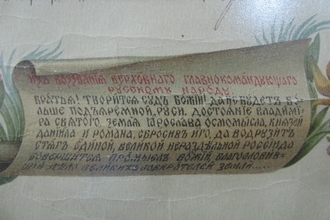 Изъ воззванія верховнаго главнокомандующаго
русскому народу.
Братья! Творится судъ Божій! Да не будетъ бо-
льше подъяремной, Руси. Достояніе Владими-
ра святого, земля Ярослава Осмомысла, князей
Даніила и Романа, сбросивъ иго, да водрузитъ
стягъ единой, великой нераздѣльной Россіи да
совершится промыслъ Божій, благословив-
шій дѣло великихъ собирателей земли